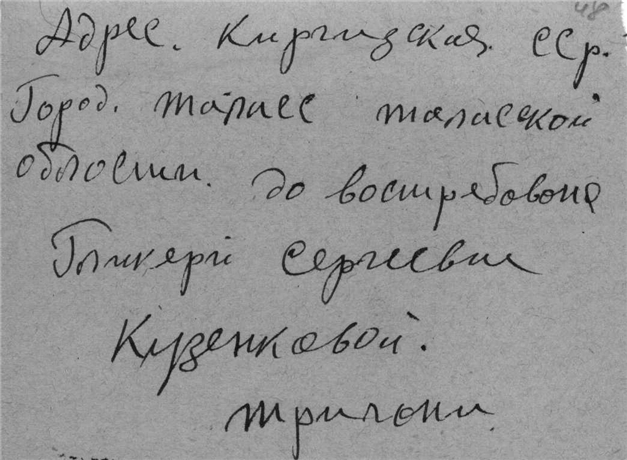 48
Адрес. Киргизская ССр.
Город. талассс таласской
области. до востребовоня
Гликери Сергеевне
Кузенковой.